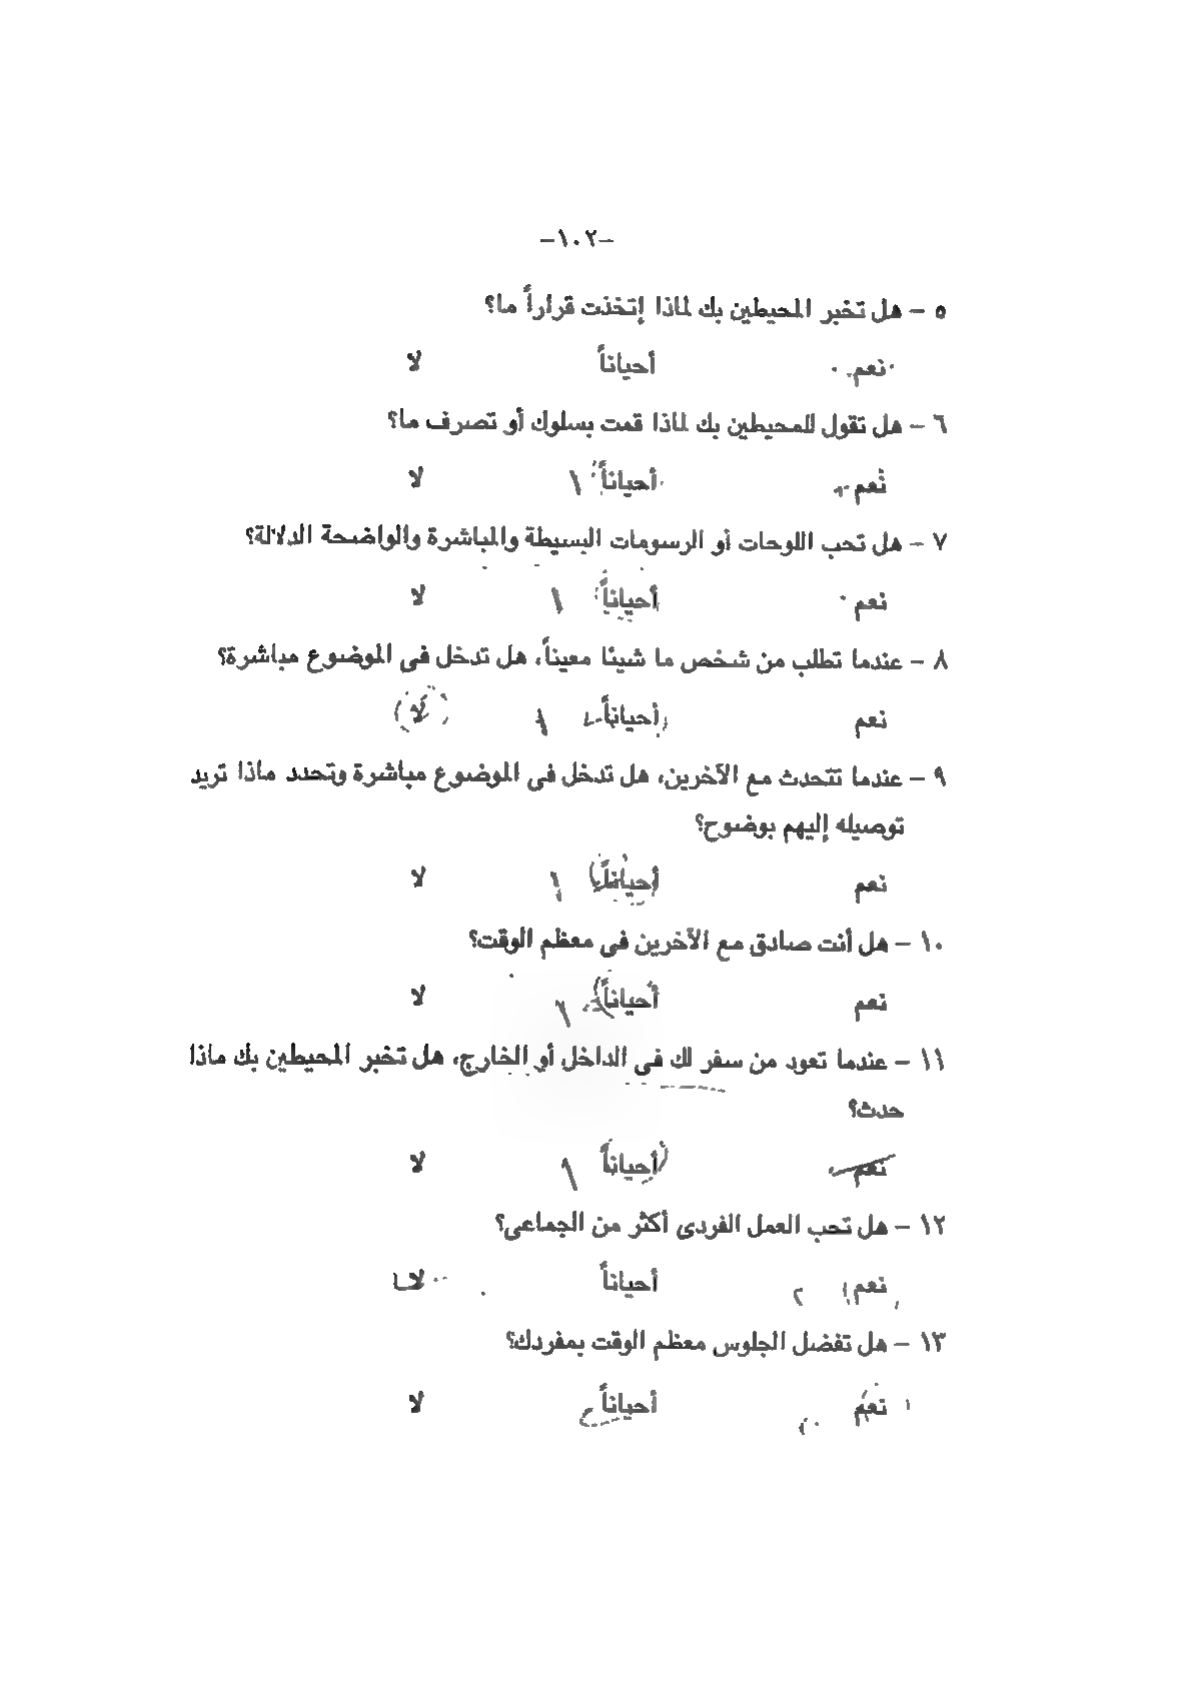 -١٠٢-
٥ - هل تخبر المحيطين بك لماذا إتخذت قراراً ما؟
نعم أحياناً لا
٦ - هل تقول للمحيطين بك لماذا قمت بسلوك أو تصرف ما؟
نعم أحياناً ١ لا
٧ - هل تحب اللوحات أو الرسومات البسيطة والمباشرة والواضحة الدلالة؟
نعم أحياناً ١ لا
٨ - عندما تطلب من شخص ما شيئا معيناً، هل تدخل فى الموضوع مباشرة؟
نعم أحياناً ١ لا
٩ - عندما تتحدث مع الآخرين، هل تدخل فى الموضوع مباشرة وتحدد ماذا تريد
توصيله إليهم بوضوح؟
نعم أحياناً ١ لا
١٠ - هل أنت صادق مع الآخرين فى معظم الوقت؟
نعم أحياناً ١ لا
١١ - عندما تعود من سفر لك فى الداخل أو الخارج، هل تخبر المحيطين بك ماذا
حدث؟
نعم أحياناً ١ لا
١٢ - هل تحب العمل الفردى أكثر من الجماعى؟
نعم ٢ أحياناً لا
١٣ - هل تفضل الجلوس معظم الوقت بمفردك؟
نعم أحياناً لا